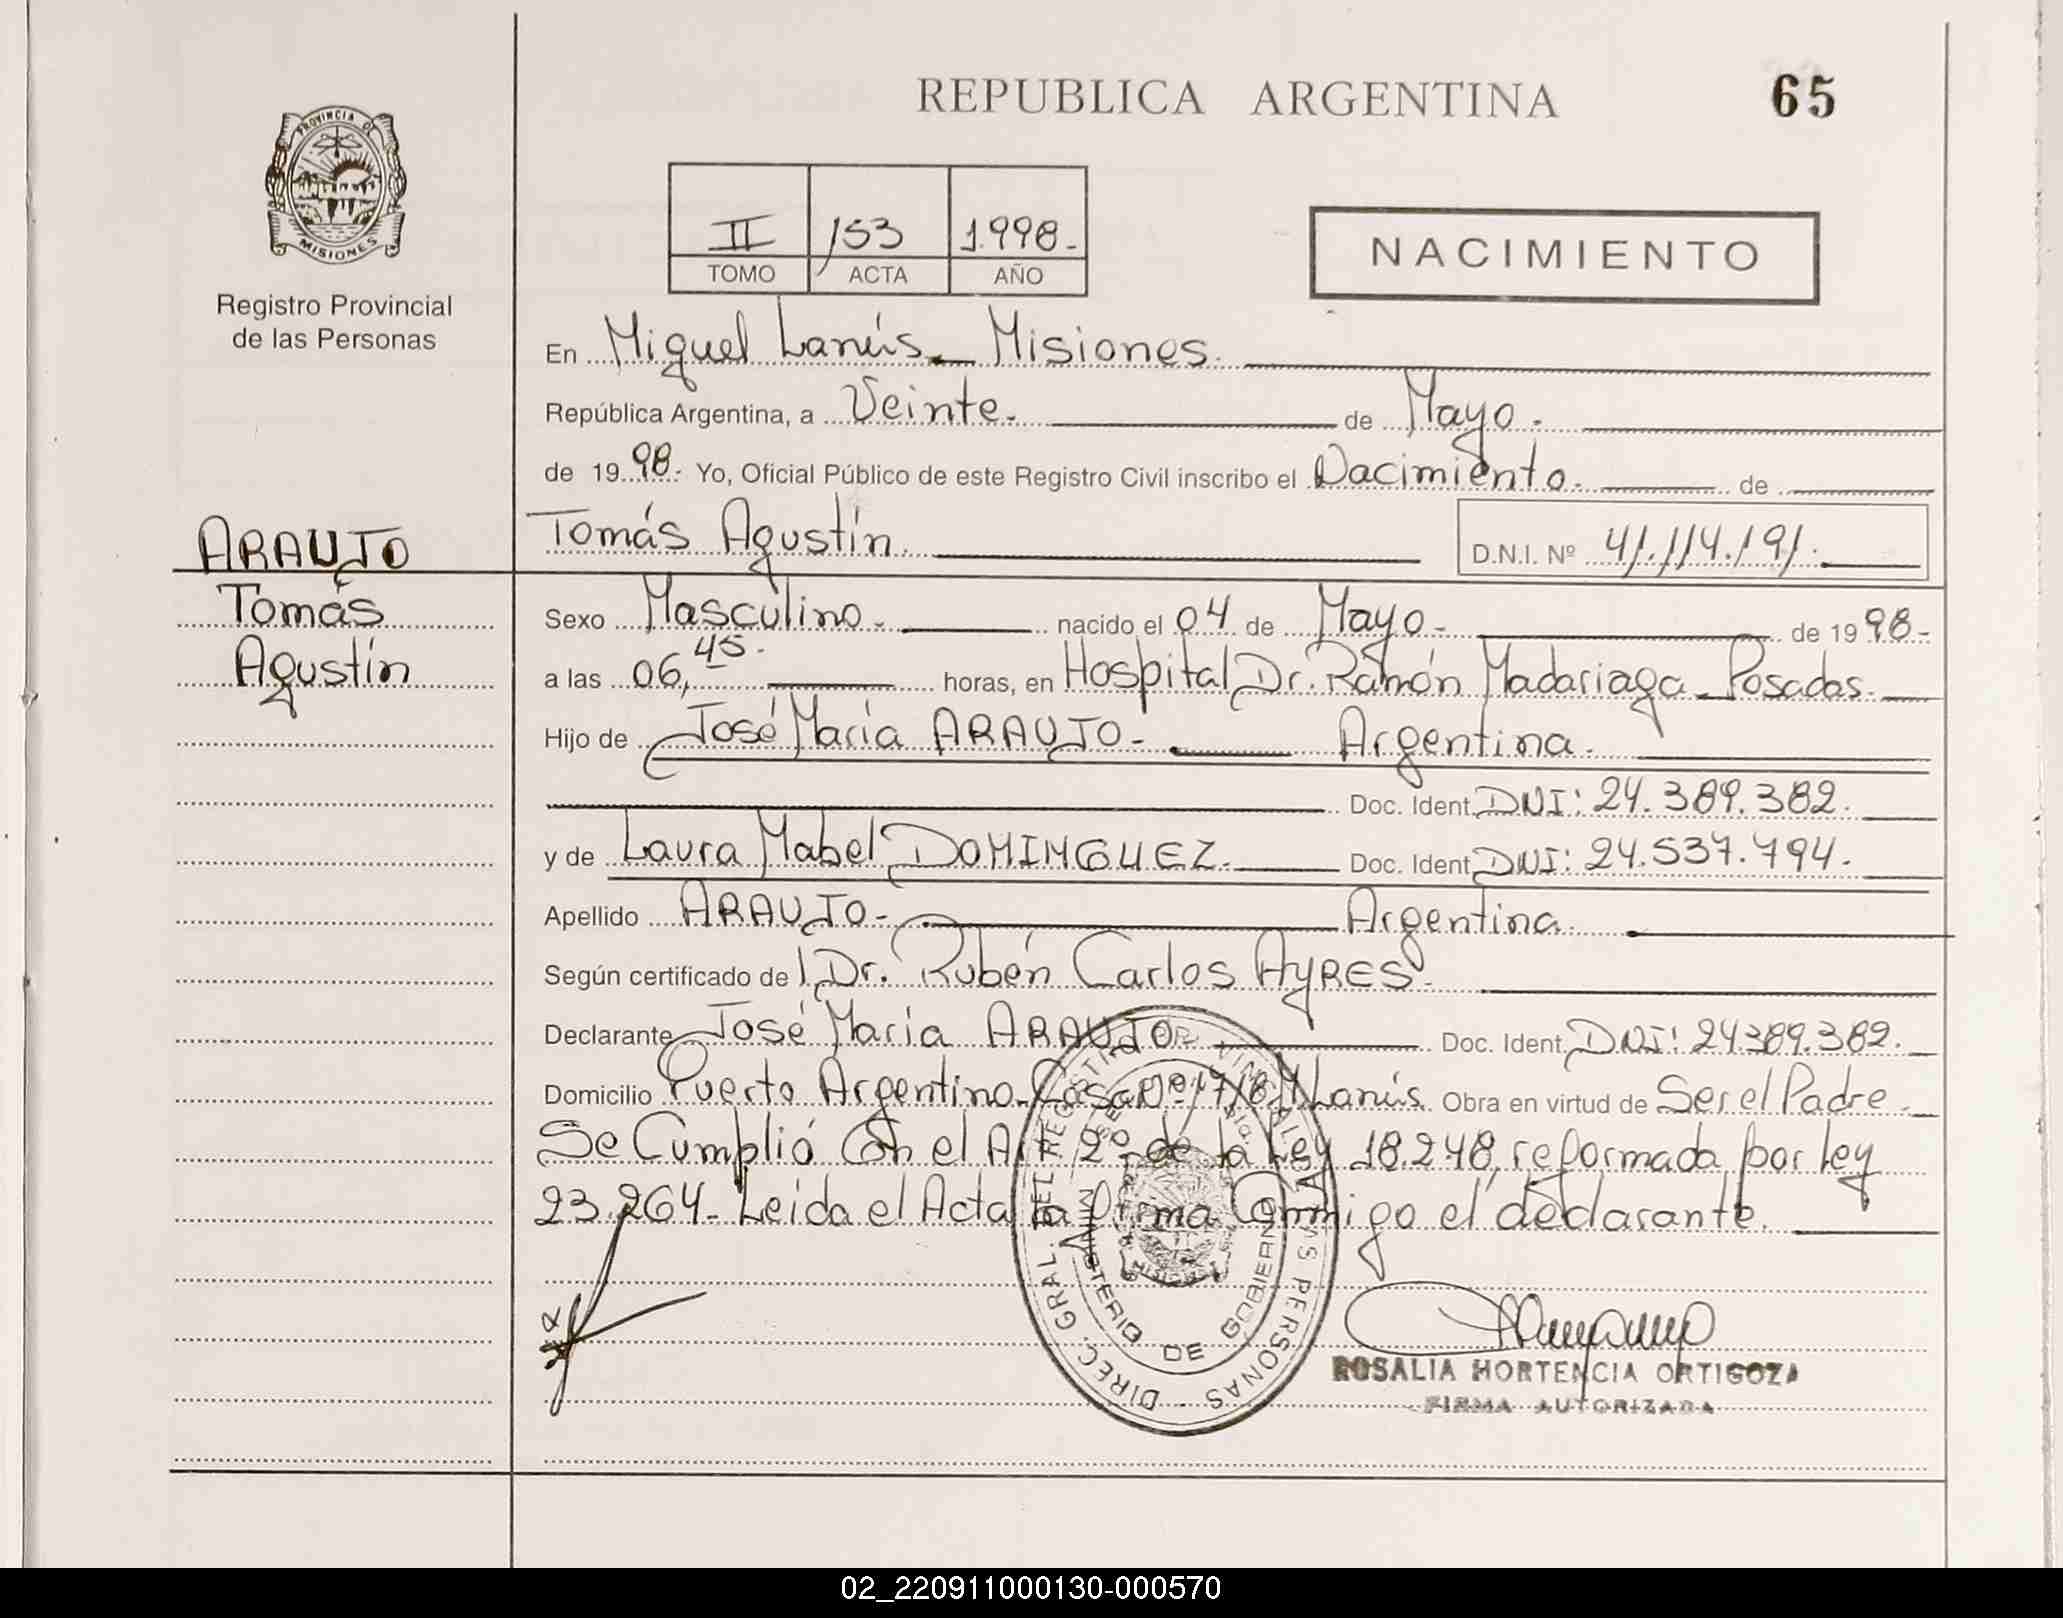 REPUBLICA ARGENTINA
65
PROVINCIA DE
MISIONES
Registro Provincial
de las Personas
II 153 1.998.-
TOMO ACTA AÑO
NACIMIENTO
En Miguel Lanús - Misiones.
República Argentina, a Veinte. de Mayo.
de 19 98.- Yo, Oficial Público de este Registro Civil inscribo el Nacimiento. de
ARAUJO
Tomás
Agustín
Tomás Agustín. D.N.I. Nº 41.114.191.
Sexo Masculino.- nacido el 04 de Mayo.- de 19 98.-
a las 06,45. horas, en Hospital Dr. Ramón Madariaga - Posadas.
Hijo de José María ARAUJO.- Argentina.
Doc. Ident. DNI: 24.389.382.
y de Laura Mabel DOMINGUEZ. Doc. Ident. DNI: 24.537.794.
Apellido ARAUJO.- Argentina.
Según certificado de l Dr. Rubén Carlos AYRES.
Declarante José María ARAUJO Doc. Ident. DNI: 24389.382.
Domicilio Puerto Argentino - Casa Nº 178 M Lanús. Obra en virtud de Ser el Padre.
Se Cumplió Con el Art 2º de la Ley 18.248, reformada por ley
23.264.- Leída el Acta la Firma Conmigo el declarante.
DIREC. GRAL. DEL REGISTRO PROVINCIAL DE LAS PERSONAS
MINISTERIO DE GOBIERNO
MISIONES
ROSALIA HORTENCIA ORTIGOZA
FIRMA AUTORIZADA
02_220911000130-000570